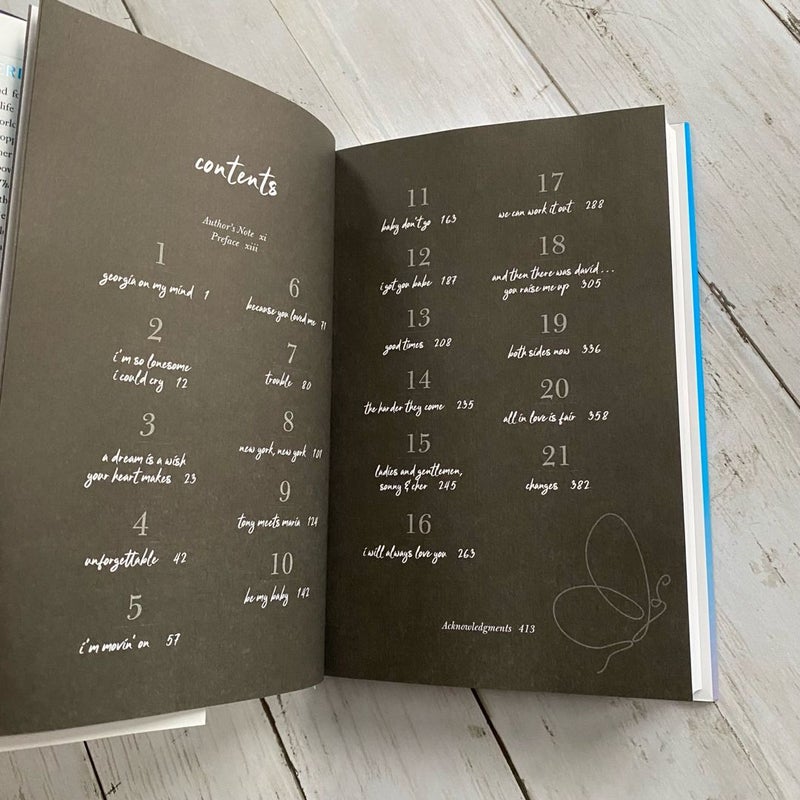 contents
Author's Note xi
Preface xiii
1
georgia on my mind 1
2
i'm so lonesome
i could cry 12
3
a dream is a wish
your heart makes 23
4
unforgettable 42
5
i'm movin' on 57
6
because you loved me 71
7
trouble 80
8
new york, new york 101
9
tony meets maria 124
10
be my baby 142
11
baby don't go 163
12
i got you babe 187
13
good times 208
14
the harder they come 235
15
ladies and gentlemen,
sonny & cher 245
16
i will always love you 263
17
we can work it out 288
18
and then there was david...
you raise me up 305
19
both sides now 336
20
all in love is fair 358
21
changes 382
Acknowledgments 413